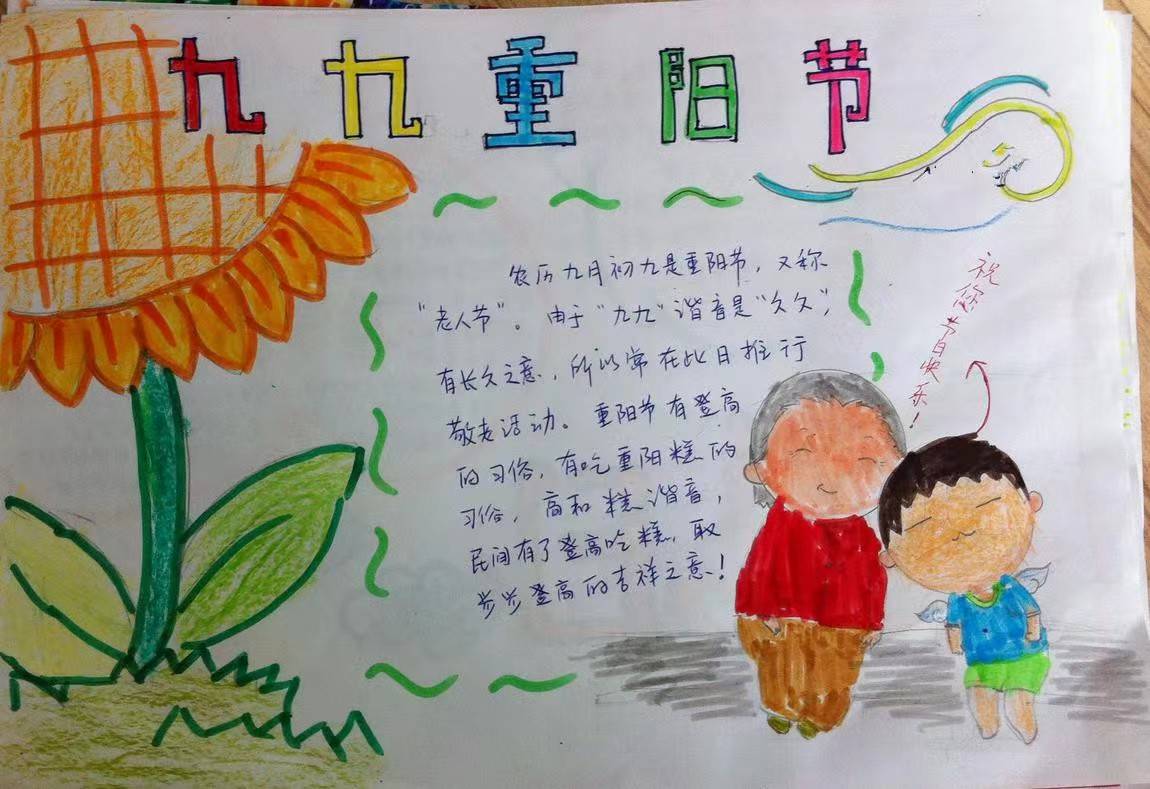 九九重阳节
农历九月初九是重阳节，又称
“老人节”。由于“九九”谐音是“久久”，
有长久之意，所以常在此日推行
敬老活动。重阳节有登高
的习俗，有吃重阳糕的
习俗，高和糕谐音，
民间有了登高吃糕，取
步步登高的吉祥之意！
祝您节日快乐！